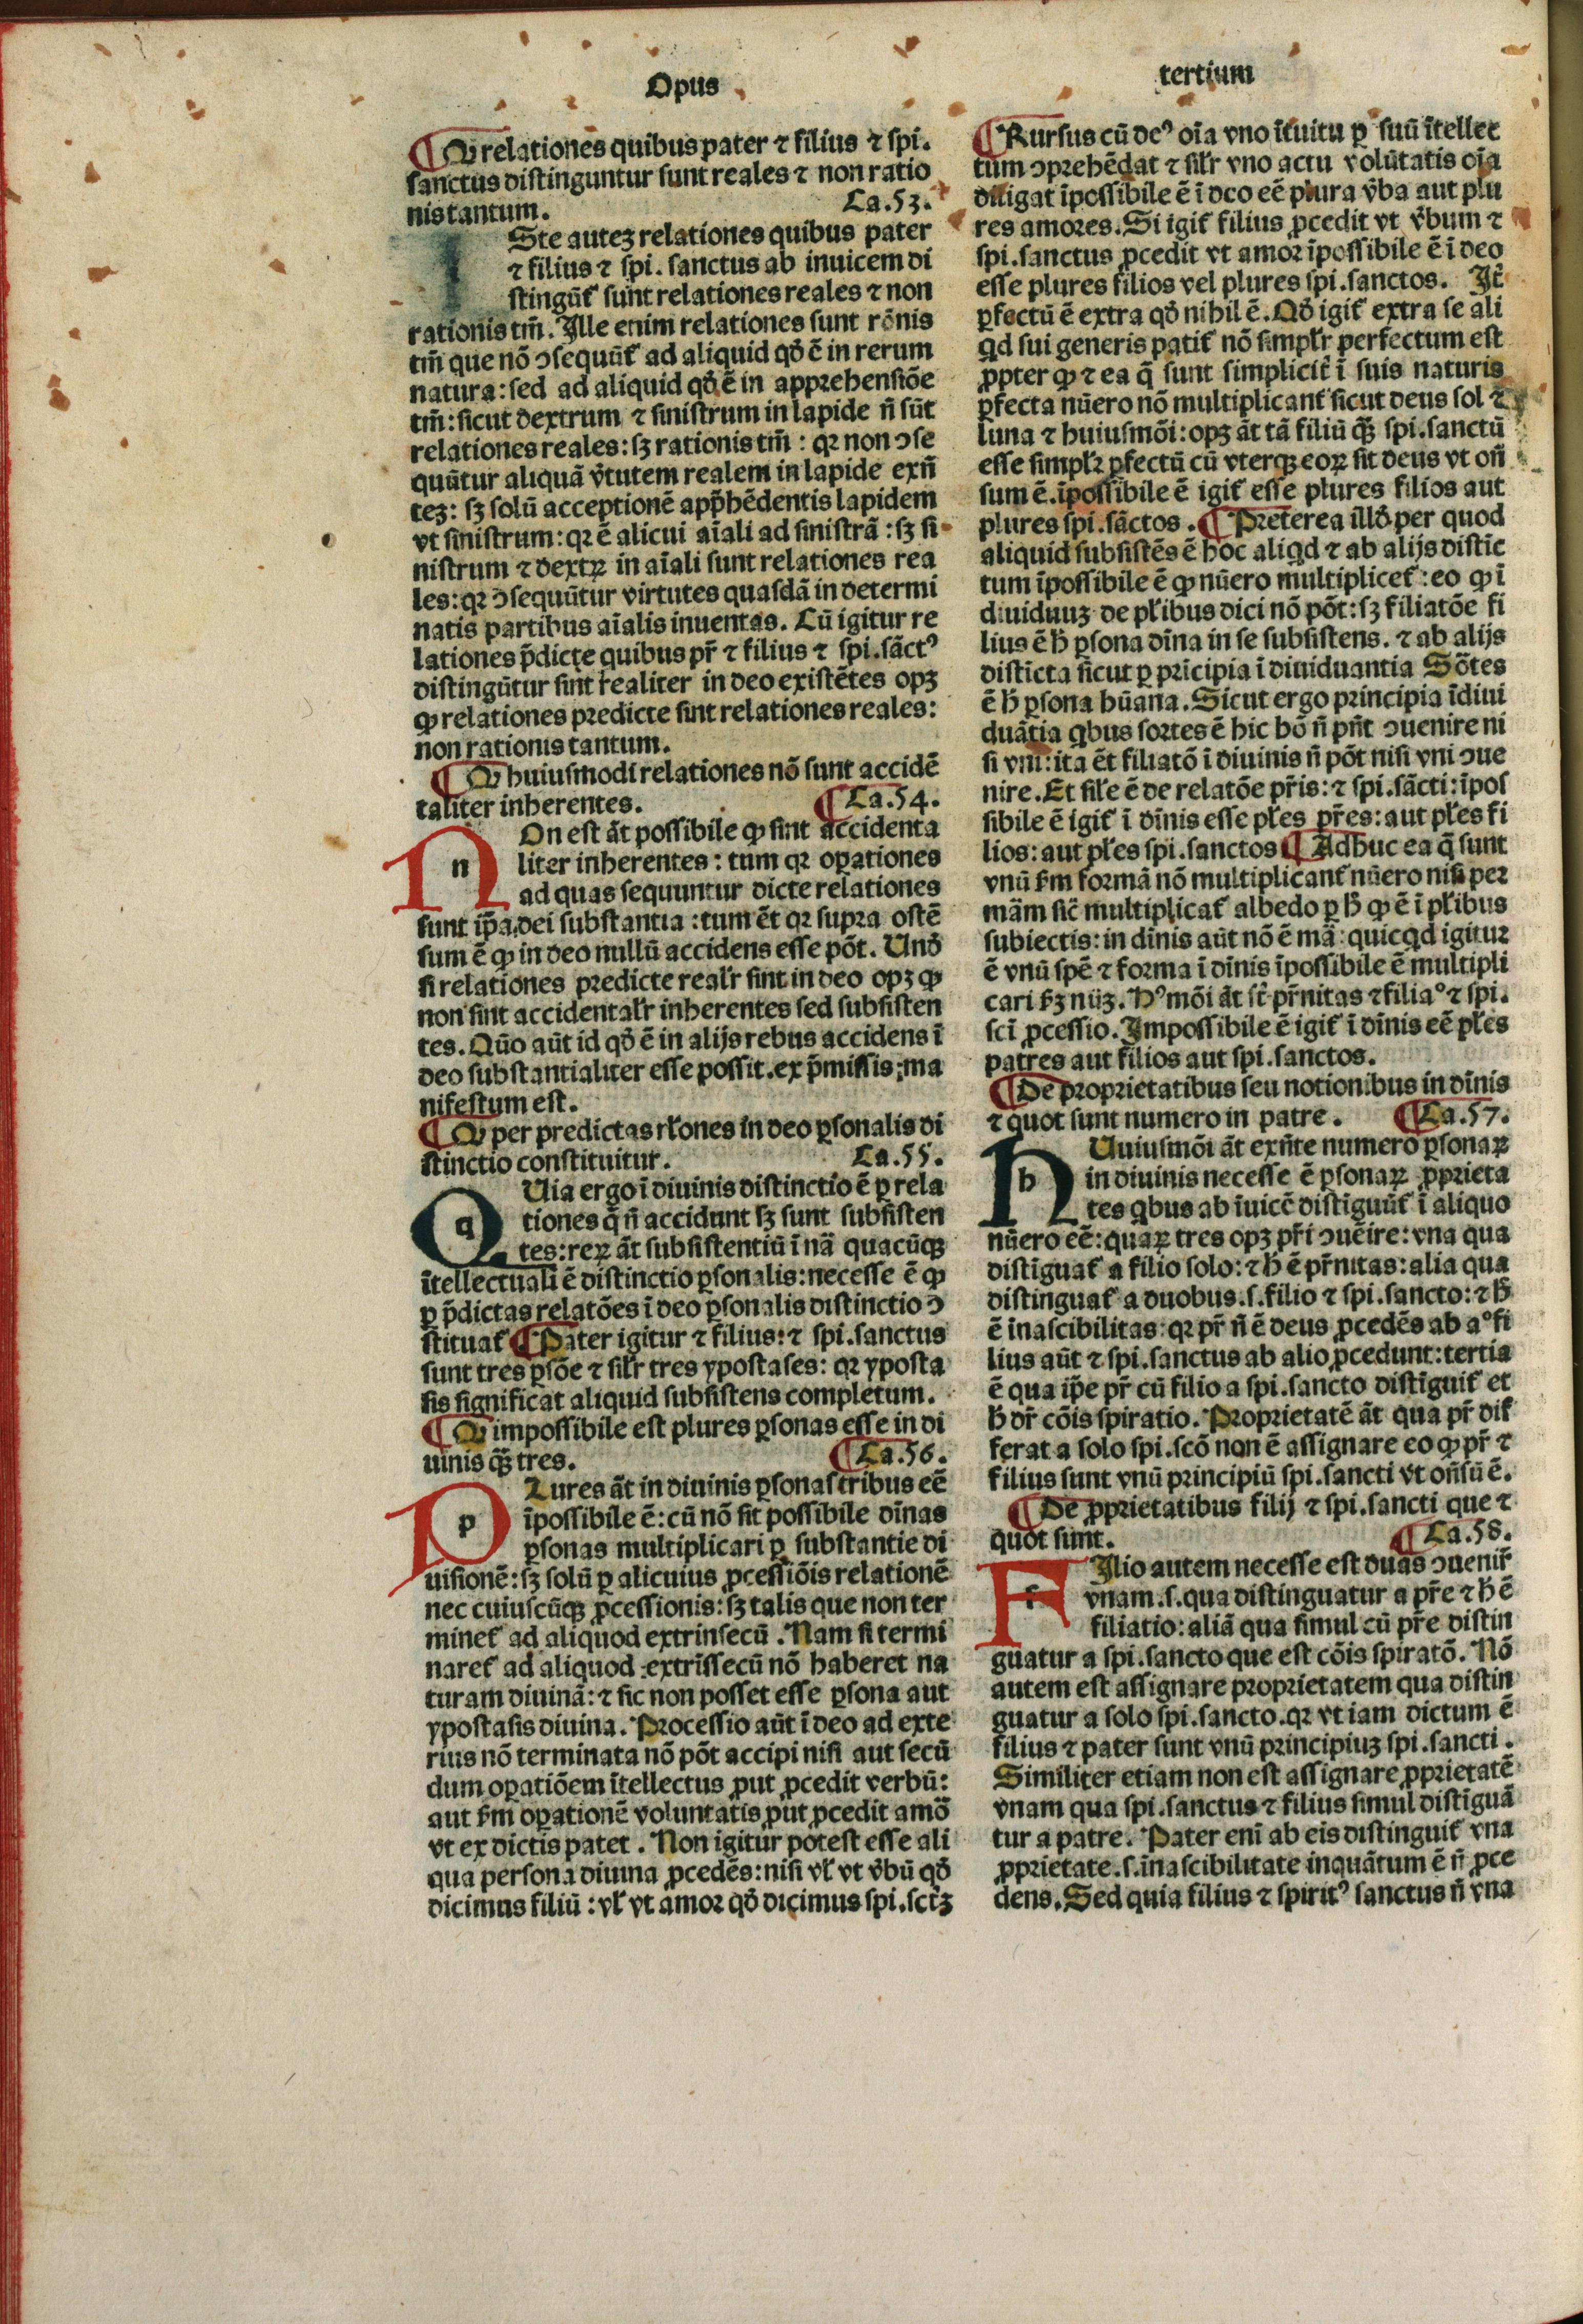 Opus
tertium
¶ Ꝙ relationes quibus pater ⁊ filius ⁊ spi.
sanctus distinguntur sunt reales ⁊ non ratio
nis tantum. Ca.53.
Ste auteꝫ relationes quibus pater
⁊ filius ⁊ spi. sanctus ab inuicem di
stingūt᷑ sunt relationes reales ⁊ non
rationis tm̄. Ille enim relationes sunt rōnis
tm̄ que nō ↄsequūt᷑ ad aliquid qđ ē in rerum
natura: sed ad aliquid qđ ē in apprehensiōe
tm̄: sicut dextrum ⁊ sinistrum in lapide n̄ sūt
relationes reales: sꝫ rationis tm̄: qꝛ non ↄse
quūtur aliquā v̄tutem realem in lapide exn̄
teꝫ: sꝫ solū acceptionē app̄hēdentis lapidem
vt sinistrum: qꝛ ē alicui aīali ad sinistrā: sꝫ si
nistrum ⁊ dextꝝ in aīali sunt relationes rea
les: qꝛ ↄsequūtur virtutes quasdā in determi
natis partibus aīalis inuentas. Cū igitur re
lationes p̄dicte quibus pr̄ ⁊ filius ⁊ spi.sāctꝰ
distingūtur sint realiter in deo existētes opꝫ
ꝙ relationes predicte sint relationes reales:
non rationis tantum.
¶ Ꝙ huiusmodi relationes nō sunt accidē
taliter inherentes. ¶ Ca.54.
n On est āt possibile ꝙ sint accidenta
liter inherentes: tum qꝛ oꝑationes
ad quas sequuntur dicte relationes
sunt ip̄a dei substantia: tum ēt qꝛ supra ostē
sum ē ꝙ in deo nullū accidens esse pōt. Unđ
si relationes predicte realr̄ sint in deo opꝫ ꝙ
non sint accidentalr̄ inherentes sed subsisten
tes. Quō aūt id qđ ē in alijs rebus accidens ī
deo substantialiter esse possit. ex p̄missis; ma
nifestum est.
¶ Ꝙ per predictas rłones in deo ꝑsonalis di
stinctio constituitur. Ca.55.
q Uia ergo ī diuinis distinctio ē ꝑ rela
tiones q̄ n̄ accidunt sꝫ sunt subsisten
tes: reꝝ āt subsistentiū ī nā quacūqꝫ
ītellectuali ē distinctio ꝑsonalis: necesse ē ꝙ
ꝑ p̄dictas relatōes ī deo ꝑsonalis distinctio ↄ
stituat᷑ ¶ Pater igitur ⁊ filius: ⁊ spi.sanctus
sunt tres ꝑsōe ⁊ silr̄ tres ypostases: qꝛ yposta
sis significat aliquid subsistens completum.
¶ Ꝙ impossibile est plures ꝑsonas esse in di
uinis qꝫ̄ tres. ¶ Ca.56.
p Lures āt in diuinis ꝑsonas tribus eē
īpossibile ē: cū nō sit possibile dīnas
ꝑsonas multiplicari ꝑ substantie di
uisionē: sꝫ solū ꝑ alicuius ꝓcessiōis relationē
nec cuiuscūqꝫ ꝓcessionis: sꝫ talis que non ter
minet᷑ ad aliquod extrinsecū. Nam si termi
naret᷑ ad aliquod extrīssecū nō haberet na
turam diuinā: ⁊ sic non posset esse ꝑsona aut
ypostasis diuina. Processio aūt ī deo ad exte
rius nō terminata nō pōt accipi nisi aut secū
dum oꝑatiōem ītellectus ꝓut ꝓcedit verbū:
aut fm̄ oꝑationē voluntatis ꝓut ꝓcedit amō
vt ex dictis patet. Non igitur potest esse ali
qua persona diuina ꝓcedēs: nisi vł vt v̄bū qđ
dicimus filiū: vł vt amor qđ dicimus spi.sctꝫ̄
¶ Rursus cū deꝰ oīa vno ītuitu ꝑ suū ītellec
tum ↄprehēdat ⁊ silr̄ vno actu volūtatis oīa
diligat īpossibile ē ī deo eē plura v̄ba aut plu
res amores. Si igit᷑ filius ꝓcedit vt v̄bum ⁊
spi.sanctus ꝓcedit vt amor īpossibile ē ī deo
esse plures filios vel plures spi.sanctos. It̄
ꝑfectū ē extra qđ nihil ē. Qđ igit᷑ extra se ali
qd sui generis patit᷑ nō simplr̄ perfectum est
ꝓpter ꝙ ⁊ ea q̄ sunt simplicit̄ ī suis naturis
ꝑfecta nūero nō multiplicant᷑ sicut deus sol ⁊
luna ⁊ huiusmōi: opꝫ āt tā filiū qꝫ̄ spi.sanctū
esse simplr̄ ꝑfectū cū vterqꝫ eoꝝ sit deus vt on̄
sum ē. īpossibile ē igit᷑ esse plures filios aut
plures spi.sāctos. ¶ Preterea illđ per quod
aliquid subsistēs ē hoc aliqd ⁊ ab alijs distīc
tum īpossibile ē ꝙ nūero multiplicet᷑: eo ꝙ ī
diuiduuꝫ de płibus dici nō pōt: sꝫ filiatōe fi
lius ē ħ ꝑsona dīna in se subsistens. ⁊ ab alijs
distīcta sicut ꝑ prīcipia ī diuiduantia Sōtes
ē ħ ꝑsona hūana. Sicut ergo principia īdiui
duātia qbus sortes ē hic hō n̄ pn̄t ↄuenire ni
si vni: ita ēt filiatō ī diuinis n̄ pōt nisi vni ↄue
nire. Et sile ē de relatōe pr̄is: ⁊ spi.sācti: īpos
sibile ē igit᷑ ī dīnis esse płes pr̄es: aut płes fi
lios: aut płes spi.sanctos ¶ Adhuc ea q̄ sunt
vnū fm̄ formā nō multiplicant᷑ nūero nisi per
mām sic̄ multiplicat᷑ albedo ꝑ ħ ꝙ ē ī płibus
subiectis: in dīnis aūt nō ē mā: quicqd igitur
ē vnū spē ⁊ forma ī dīnis īpossibile ē multipli
cari fꝫ nūꝫ. Hꝰmōi āt st̄ pr̄nitas ⁊ filiaº ⁊ spi.
scī ꝓcessio. Impossibile ē igit᷑ ī dīnis eē płes
patres aut filios aut spi.sanctos.
¶ De proprietatibus seu notionibus in dīnis
⁊ quot sunt numero in patre. ¶ Ca.57.
h Uuiusmōi āt exn̄te numero ꝑsonaꝝ
in diuinis necesse ē ꝑsonaꝝ ꝓprieta
tes qbus ab īuicē distīguūt᷑ ī aliquo
nūero eē: quaꝝ tres opꝫ pr̄i ↄuēire: vna qua
distīguat᷑ a filio solo: ⁊ ħ ē pr̄nitas: alia qua
distinguat᷑ a duobus.s.filio ⁊ spi.sancto: ⁊ ħ
ē inascibilitas: qꝛ pr̄ n̄ ē deus ꝓcedēs ab aº fi
lius aūt ⁊ spi.sanctus ab alio ꝓcedunt: tertia
ē qua ip̄e pr̄ cū filio a spi.sancto distīguit᷑ et
ħ dr̄ cōis spiratio. Proprietatē āt qua pr̄ dif
ferat a solo spi.scō non ē assignare eo ꝙ pr̄ ⁊
filius sunt vnū principiū spi.sancti vt on̄sū ē.
¶ De ꝓprietatibus filij ⁊ spi.sancti que ⁊
quot sunt. ¶ Ca.58.
f Ilio autem necesse est duas ↄuenir̄
vnam.s.qua distinguatur a pr̄e ⁊ ħ ē
filiatio: aliā qua simul cū pr̄e distin
guatur a spi.sancto que est cōis spiratō. Nō
autem est assignare proprietatem qua distin
guatur a solo spi.sancto. qꝛ vt iam dictum ē
filius ⁊ pater sunt vnū principiuꝫ spi.sancti.
Similiter etiam non est assignare ꝓprietatē
vnam qua spi.sanctus ⁊ filius simul distīguā
tur a patre. Pater enī ab eis distinguit᷑ vna
ꝓprietate.s.inascibilitate inquātum ē n̄ ꝓce
dens. Sed quia filius ⁊ spiritꝰ sanctus n̄ vna